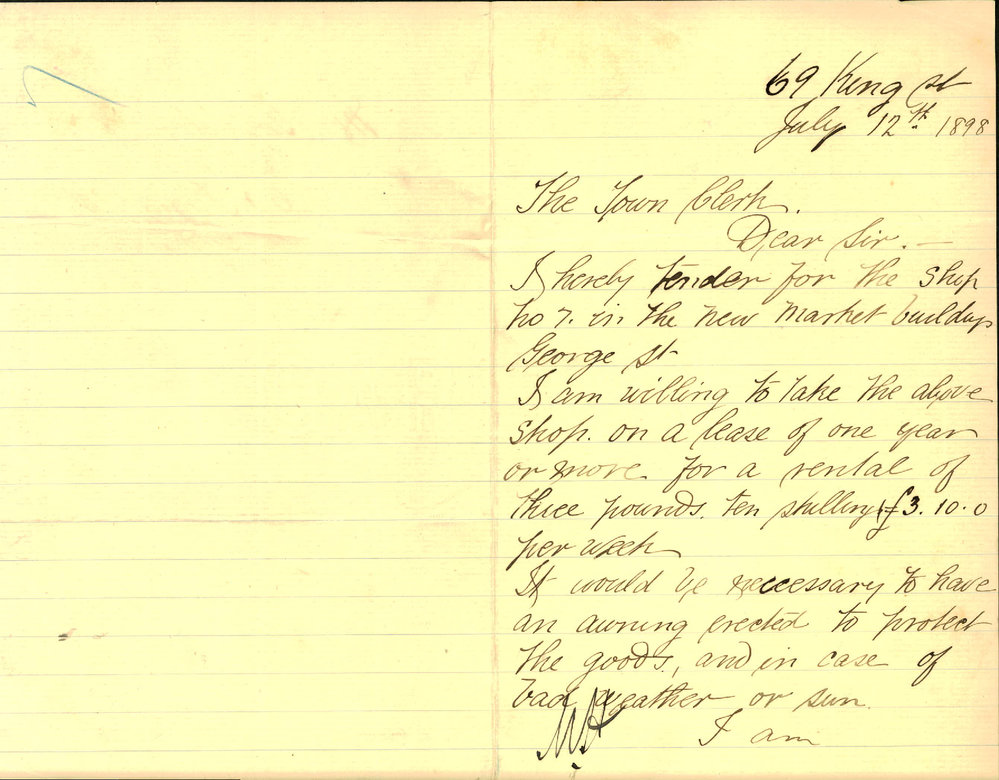 69 King st
July 12th 1898
The Town Clerk.
Dear Sir. —
I hereby tender for the shop
no 7. in the new market buildings
George st
I am willing to take the above
shop. on a lease of one year
or more for a rental of
three pounds. ten shillings (£3.10.0
per week
It would be necessary to have
an awning erected to protect
the goods, and in case of
bad weather or sun.
I am